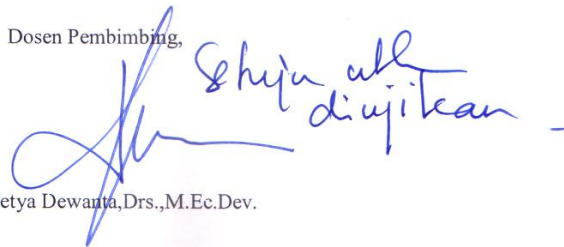 Dosen Pembimbing,
Setuju utk
diujikan
etya Dewanta,Drs.,M.Ec.Dev.